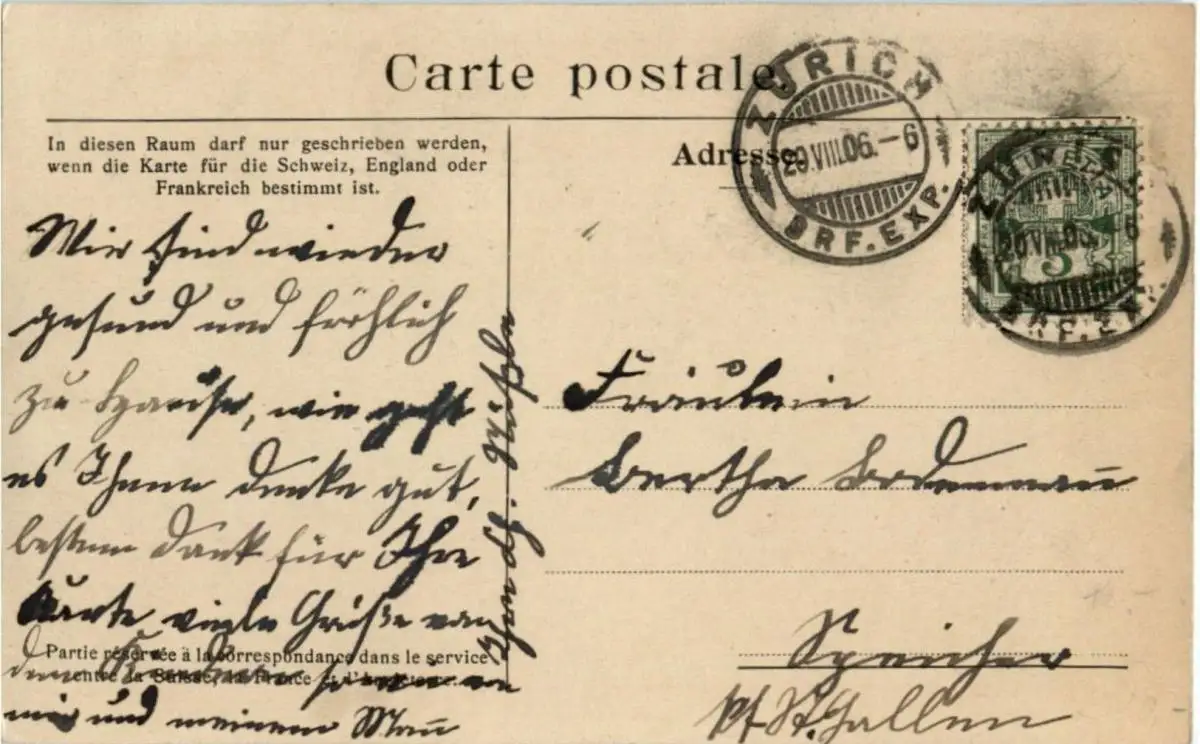 Carte postale
In diesen Raum darf nur geschrieben werden,
wenn die Karte für die Schweiz, England oder
Frankreich bestimmt ist.
Adresse.
ZÜRICH
20.VIII.06.–6
BRF. EXP.
HELVETIA
5
ZÜRICH
20.VIII.06.–6
BRF. EXP.
Wir sind wieder
gesund und fröhlich
zu Hause, wie geht
es Ihnen danke gut,
besten Dank für Ihre
Karte viele Grüße von
den sowie von
mir und meinem Mann
Fräulein
Bertha
Speicher
St. Gallen
Partie réservée à la correspondance dans le service
entre la Suisse, la France et l'Angleterre.